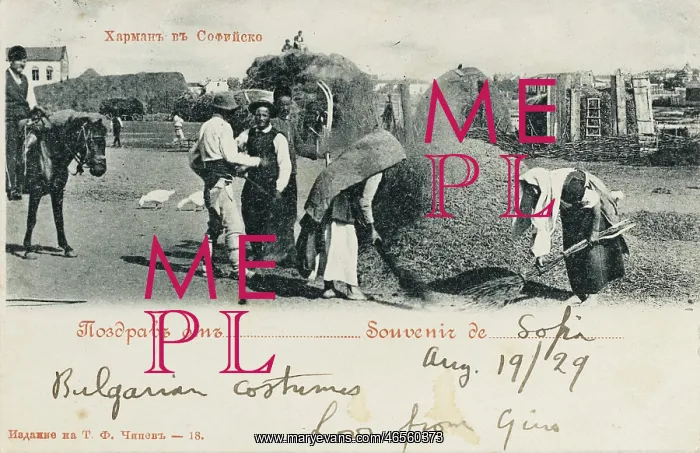 Харманъ въ Софийско
ME
PL
ME
PL
Поздравъ отъ Souvenir de Sofia
Aug. 19/29
Bulgarian costumes
from
Издание на Т. Ф. Чипевъ — 18.
www.maryevans.com/46560373